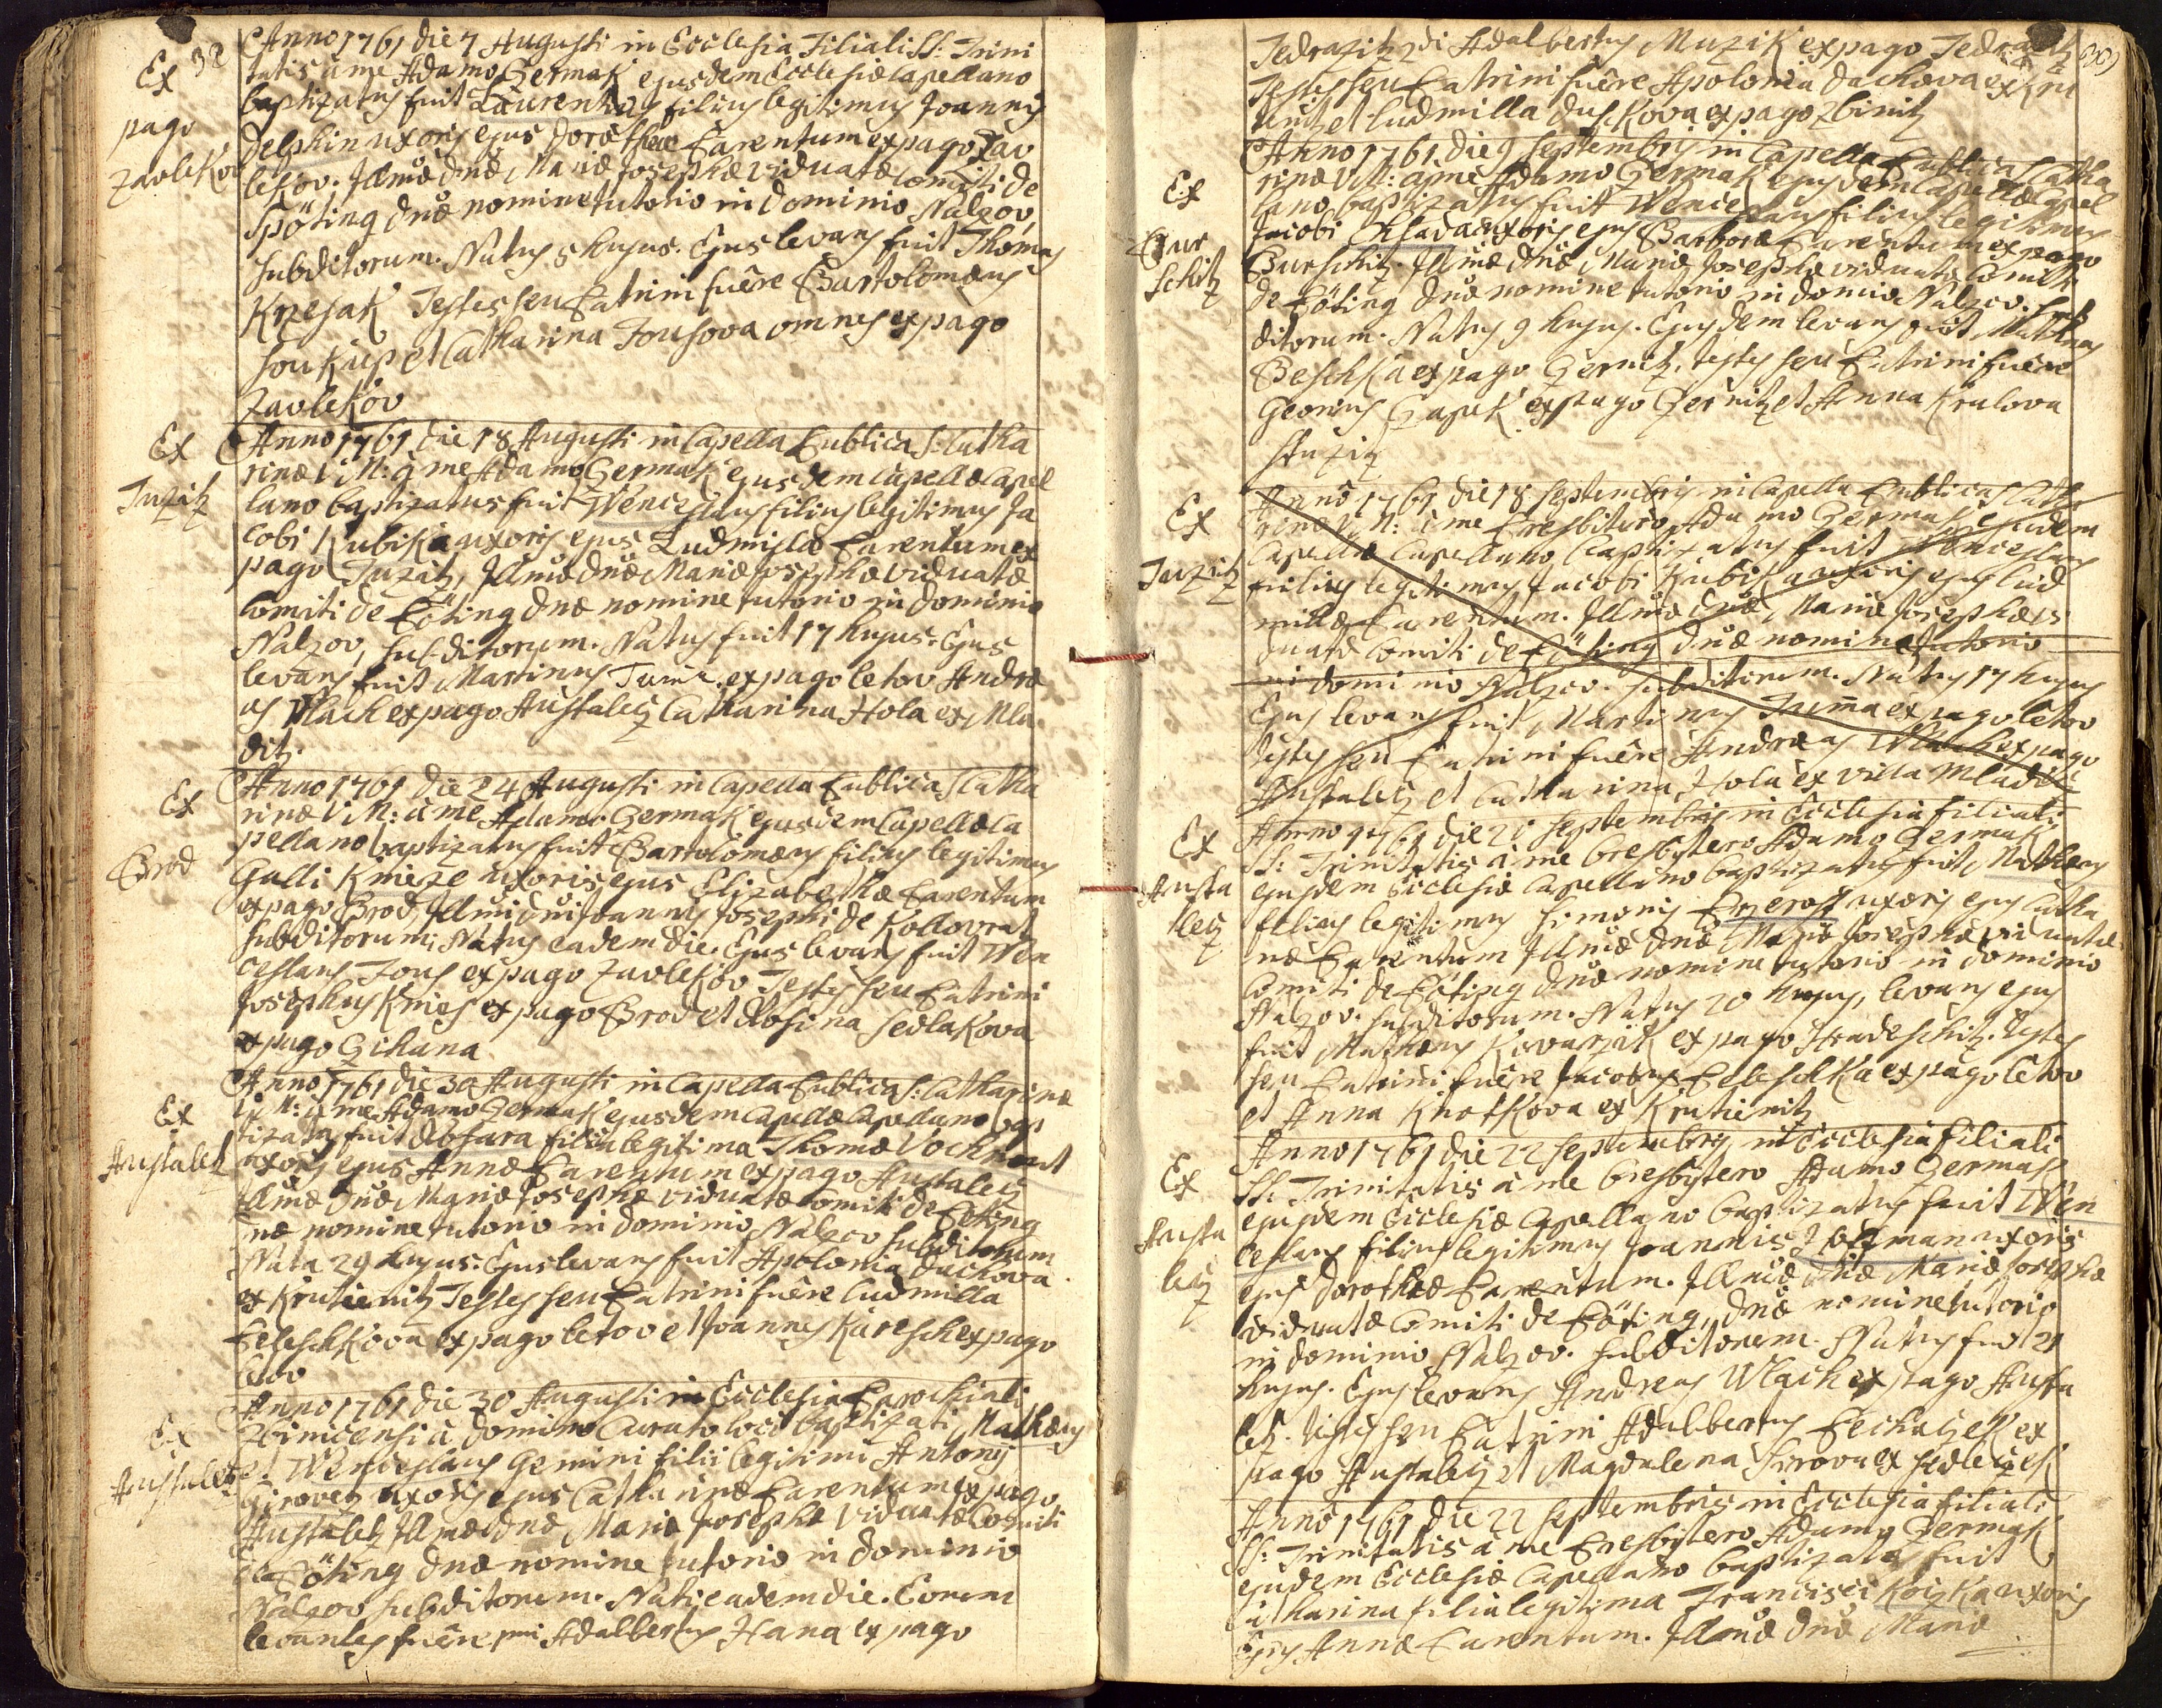 32
Ex
pago
Zavlekov
Anno 1761 die 7 Augusti in Ecclesia Filiali SS: Trini
tatis à me Adamo Czermak ejusdem Ecclesiæ Capellano
baptizatus fuit Laurentius filius legitimus Joannis
Delphin uxoris ejus Dorotheæ Parentum ex pago Zav
lekov. Illmæ dnæ Mariæ Josephæ viduatæ Comiti de
Pöting dnæ nomine tutorio in Dominio Nalzov,
subditorum. Natus 5 hujus. Ejus levans fuit Thomas
Krzesak Testes seu Patrini fuêre Bartolomæus
Soukup et Catharina Jousova omnes ex pago
Zavlekov
Ex
Juzitz
Anno 1761 die 18 Augusti in Capella Publica S: Catha
rinæ V: M: à me Adamo Czermak ejusdem Capellæ Capel
lano baptizatus fuit Wenceslaus filius legitimus Ja
cobi Kubiska uxoris ejus Ludmillæ Parentum ex
pago Juzitz, Illmæ dnæ Mariæ Josephæ viduatæ
Comiti de Pöting dnæ nomine tutorio in dominio
Nalzov, subditorum. Natus fuit 17 hujus. Ejus
levans fuit Martinus Tuma ex pago Letov Andræ
as Wlach ex pago Austaletz Catharina Hola ex Mla
ditz.
Ex
Brod
Anno 1761 die 24 Augusti in Capella Publica S Catha
rinæ V: M: à me Adamo Czermak ejusdem Capellæ Ca
pellano baptizatus fuit Bartolomæus filius legitimus
Galli Knieze uxoris ejus Elizabethæ Parentum
ex pago Brod, Illmi dni Joannis Josephi de Kollovrat
subditorum. Natus eadem die. Ejus levans fuit Wen
ceslaus Jous ex pago Zavlekov Testes seu Patrini
Josephus Knies ex pago Brod et Rosina Sedlakova
ex pago Czihana
Ex
Austaletz
Anno 1761 die 30 Augusti in Capella Publica S: Catharinæ
V: M: à me Adamo Czermak ejusdem Capellæ Capellano bap
tizata fuit filia legitima Thomæ
uxoris ejus Annæ Parentum ex pago Austaletz
Illmæ dnæ Mariæ Josephæ viduatæ Comiti de Pöting
dnæ nomine tutorio in dominio Nalzov subditorum
Nata 29 hujus. Ejus levans fuit Apolonia Duchova
ex Krutienitz Testes seu Patrini fuêre Ludmilla
Peleschkova ex pago Letov et Joannes Karesch ex pago
Letov
Ex
Austaletz
Anno 1761 die 30 Augusti in Ecclesia Parochiali
Zbinicensi à domino Curato loci baptizati Mathæus
et Wenceslaus Gemini filii legitimi Antonij
Girovetz uxoris ejus Catharinæ Parentum ex pago
Austaletz Illmæ dnæ Mariæ Josephæ viduatæ Comiti
de Pöting dnæ nomine tutorio in dominio
Nalzov subditorum. Nati eadem die. Eorum
levantes fuêre pmi Adalbertus Hana ex pago
Jedrazitz 2di Adalbertus Muzik ex pago Jedrazitz
Testes seu Patrini fuêre Apolonia Duchova ex Kru
tienitz et Ludmilla Duschkova ex pago Zbinitz
Ex
Bur
schitz
Anno 1761 die 9 Septembris in Capella Publica S Catha
rinæ V: M: à me Adamo Czermak ejusdem Capellæ Capel
lano baptizatus fuit Wenceslaus filius legitimus
Jacobi uxoris ejus Barboræ Parentum ex pago
Burschitz. Illmæ dnæ Mariæ Josephæ viduatæ Comiti
de Pöting dnæ nomine tutorio in dominio Nalzov. sub
ditorum. Natus 9 hujus. Ejusdem levans fuit Mathias
Beschka ex pago Czernitz, testes seu Patrini fuêre
Georius Czapek ex pago Czernitz et Anna Kralova
Ex
Juzitz
Anno 1761 die 18 Septembris in Capella Publica S Catha
rinæ V: M: à me Presbitero Adamo Czermak ejusdem
Capellæ Capellano baptizatus fuit Wenceslaus
filius legitimus Jacobi Kubiska uxoris ejus Lud
millæ Parentum. Illmæ dnæ Mariæ Josephæ vi
duatæ Comiti de Pöting dnæ nomine tutorio
in dominio Nalzov. subditorum. Natus 17 hujus
Ejus levans fuit Martinus Tuma ex pago Letov
testes seu Patrini fuêre Andreas Wlach ex pago
Austaletz et Catharina Hola ex villa Mladitz
Ex
Austa
letz
Anno 1761 die 20 Septembris in Ecclesia filiali
SS: Trinitatis à me Presbytero Adamo Czermak
ejusdem Ecclesiæ Capellano baptizatus fuit Mathæus
filius legitimus Simonis uxoris ejus Catha
næ Parentum Illmæ dnæ Mariæ Josephæ viduatæ
Comiti de Pöting dnæ nomine tutorio in dominio
Nalzov. subditorum. Natus 20 hujus, levans ejus
fuit Mathæus Kovarzik ex pago Hradeschitz. Testes
seu Patrini fuêre Jacobus Peleschka ex pago Letov
et Anna Knotkova ex Krutienitz
Ex
Austa
letz
Anno 1761 die 22 Septembris in Ecclesia Filiali
SS: Trinitatis à me Presbytero Adamo Czermak
ejusdem Ecclesiæ Capellano baptizatus fuit Wen
ceslaus filius legitimus Joannis uxoris
ejus Dorotheæ Parentum. Illmæ dnæ Mariæ Josephæ
viduatæ Comiti de Pöting, dnæ nomine tutorio
in dominio Nalzov. subditorum. Natus fuit 21
hujus. Ejus levans Andreas Wlach ex pago Austa
letz. testes seu Patrini Adalbertus ex
pago Austaletz et Magdalena ex
Anno 1761 die 22 Septembris in Ecclesia filiali
SS: Trinitatis à me Presbytero Adamo Czermak
ejusdem Ecclesiæ Capellano baptizata fuit
Catharina filia legitima Francisci uxoris
ejus Annæ Parentum. Illmæ dnæ Mariæ